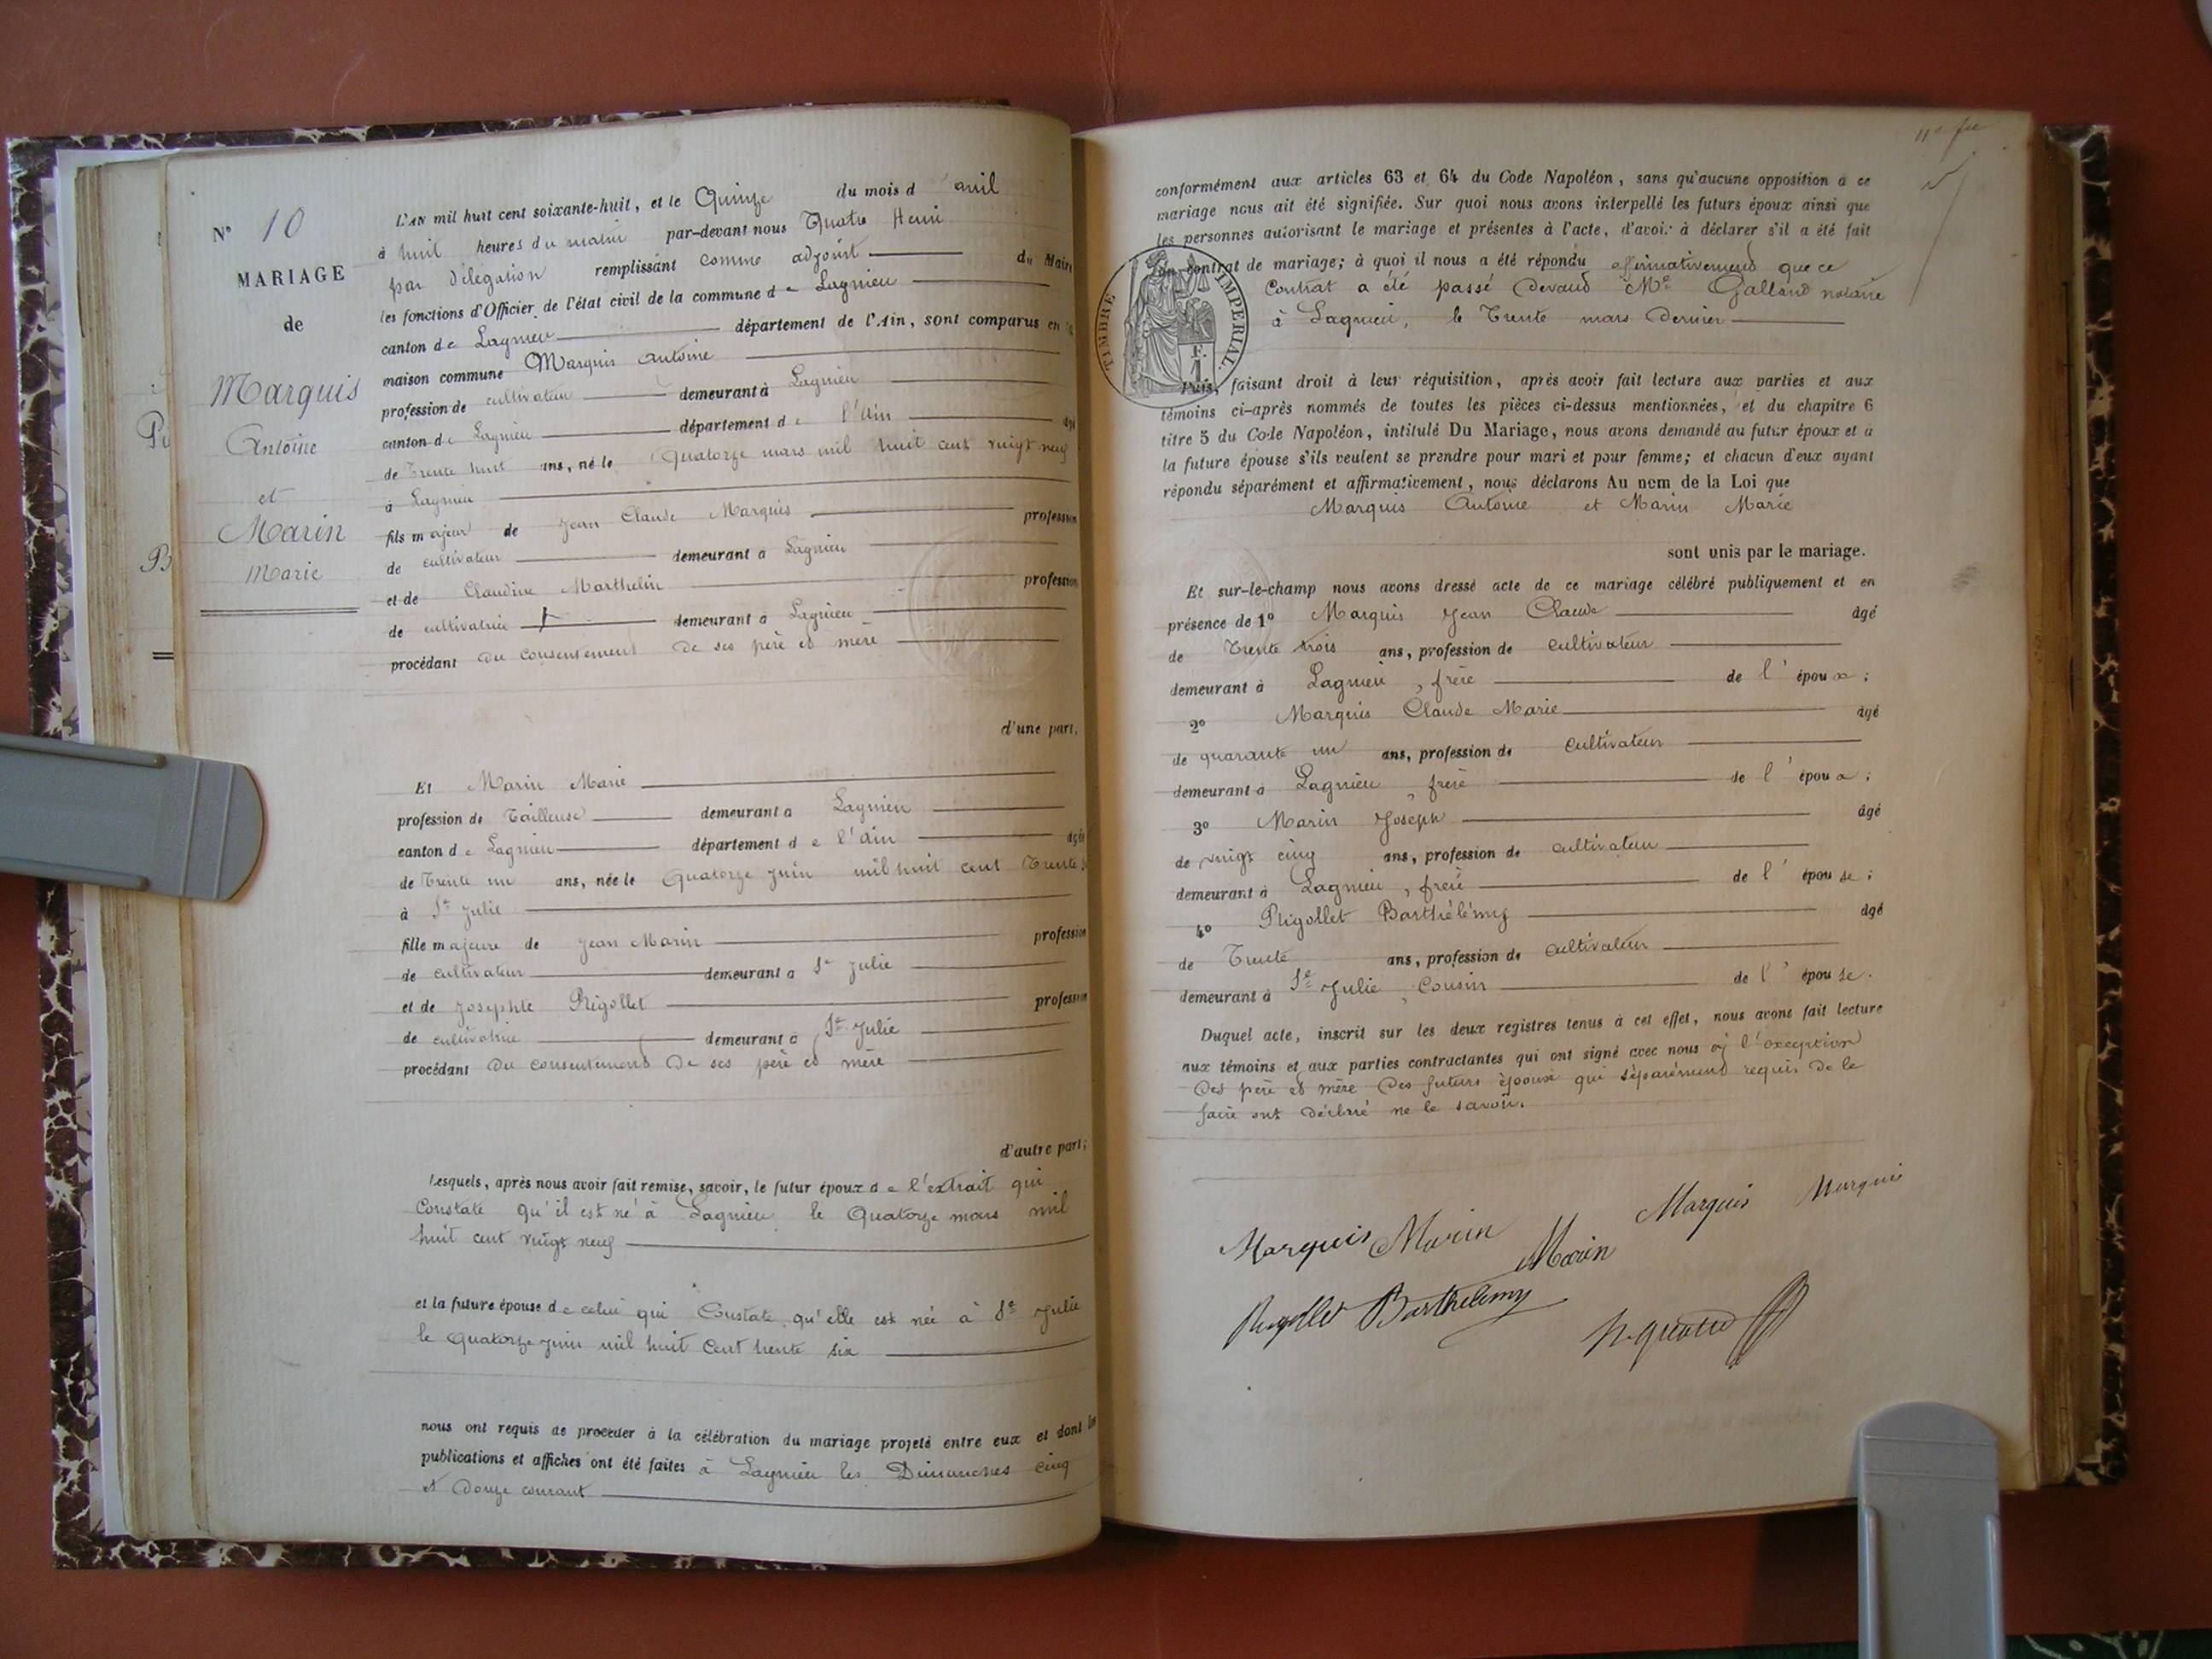 N° 10
MARIAGE
de
Marquis
Antoine
et
Marin
Marie
L'AN mil huit cent soixante-huit, et le Quinze du mois d avril
à huit heures du matin par-devant nous Quatre Henri
par délégation remplissant comme adjoint du Maire
les fonctions d'Officier de l'état civil de la commune de Lagnieu
canton de Lagnieu département de l'Ain, sont comparus en la
maison commune Marquis Antoine
profession de cultivateur demeurant à Lagnieu
canton de Lagnieu département de l'Ain âgé
de Trente huit ans, né le Quatorze mars mil huit cent vingt neuf
à Lagnieu
fils majeur de Jean Claude Marquis profession
de cultivateur demeurant à Lagnieu
et de Claudine Marthelin profession
de cultivatrice demeurant à Lagnieu
procédant du consentement de ses père et mère
d'une part,
Et Marin Marie
profession de Tailleuse demeurant à Lagnieu
canton de Lagnieu département de l'Ain âgée
de Trente un ans, née le Quatorze juin mil huit cent Trente
à Ste Julie
fille majeure de Jean Marin profession
de cultivateur demeurant à Ste Julie
et de Josephte Rigollet profession
de cultivatrice demeurant à Ste Julie
procédant du consentement de ses père et mère
d'autre part;
Lesquels, après nous avoir fait remise, savoir, le futur époux de l'extrait qui
Constate qu'il est né à Lagnieu le Quatorze mars mil
huit cent vingt neuf
et la future épouse de celui qui Constate qu'elle est née à Ste Julie
le Quatorze juin mil huit Cent trente six
nous ont requis de procéder à la célébration du mariage projeté entre eux et dont les
publications et affiches ont été faites à Lagnieu les Dimanches cinq
et Douze courant
conformément aux articles 63 et 64 du Code Napoléon, sans qu'aucune opposition à ce
mariage nous ait été signifiée. Sur quoi nous avons interpellé les futurs époux ainsi que
les personnes autorisant le mariage et présentes à l'acte, d'avoir à déclarer s'il a été fait
un contrat de mariage; à quoi il nous a été répondu affirmativement que ce
Contrat a été passé devant Me Galland notaire
à Lagnieu, le Trente mars Dernier
TIMBRE IMPERIAL
F.
1
Puis, faisant droit à leur réquisition, après avoir fait lecture aux parties et aux
témoins ci-après nommés de toutes les pièces ci-dessus mentionnées, et du chapitre 6
titre 5 du Code Napoléon, intitulé Du Mariage, nous avons demandé au futur époux et à
la future épouse s'ils veulent se prendre pour mari et pour femme; et chacun d'eux ayant
répondu séparément et affirmativement, nous déclarons Au nom de la Loi que
Marquis Antoine et Marin Marie
sont unis par le mariage.
Et sur-le-champ nous avons dressé acte de ce mariage célébré publiquement et en
présence de 1° Marquis Jean Claude âgé
de Trente trois ans, profession de cultivateur
demeurant à Lagnieu, frère de l'époux;
2° Marquis Claude Marie âgé
de quarante un ans, profession de cultivateur
demeurant à Lagnieu, frère de l'époux;
3° Marin Joseph âgé
de vingt cinq ans, profession de cultivateur
demeurant à Lagnieu, frère de l'épouse;
4° Rigollet Barthélémy âgé
de Trente ans, profession de cultivateur
demeurant à Ste Julie, Cousin de l'épouse.
Duquel acte, inscrit sur les deux registres tenus à cet effet, nous avons fait lecture
aux témoins et aux parties contractantes qui ont signé avec nous à l'exception
des père et mère des futurs époux qui séparément requis de le
faire ont déclaré ne le savoir.
Marquis Marin Marin Marquis Marquis
Rigollet Barthelemy
h. quatre